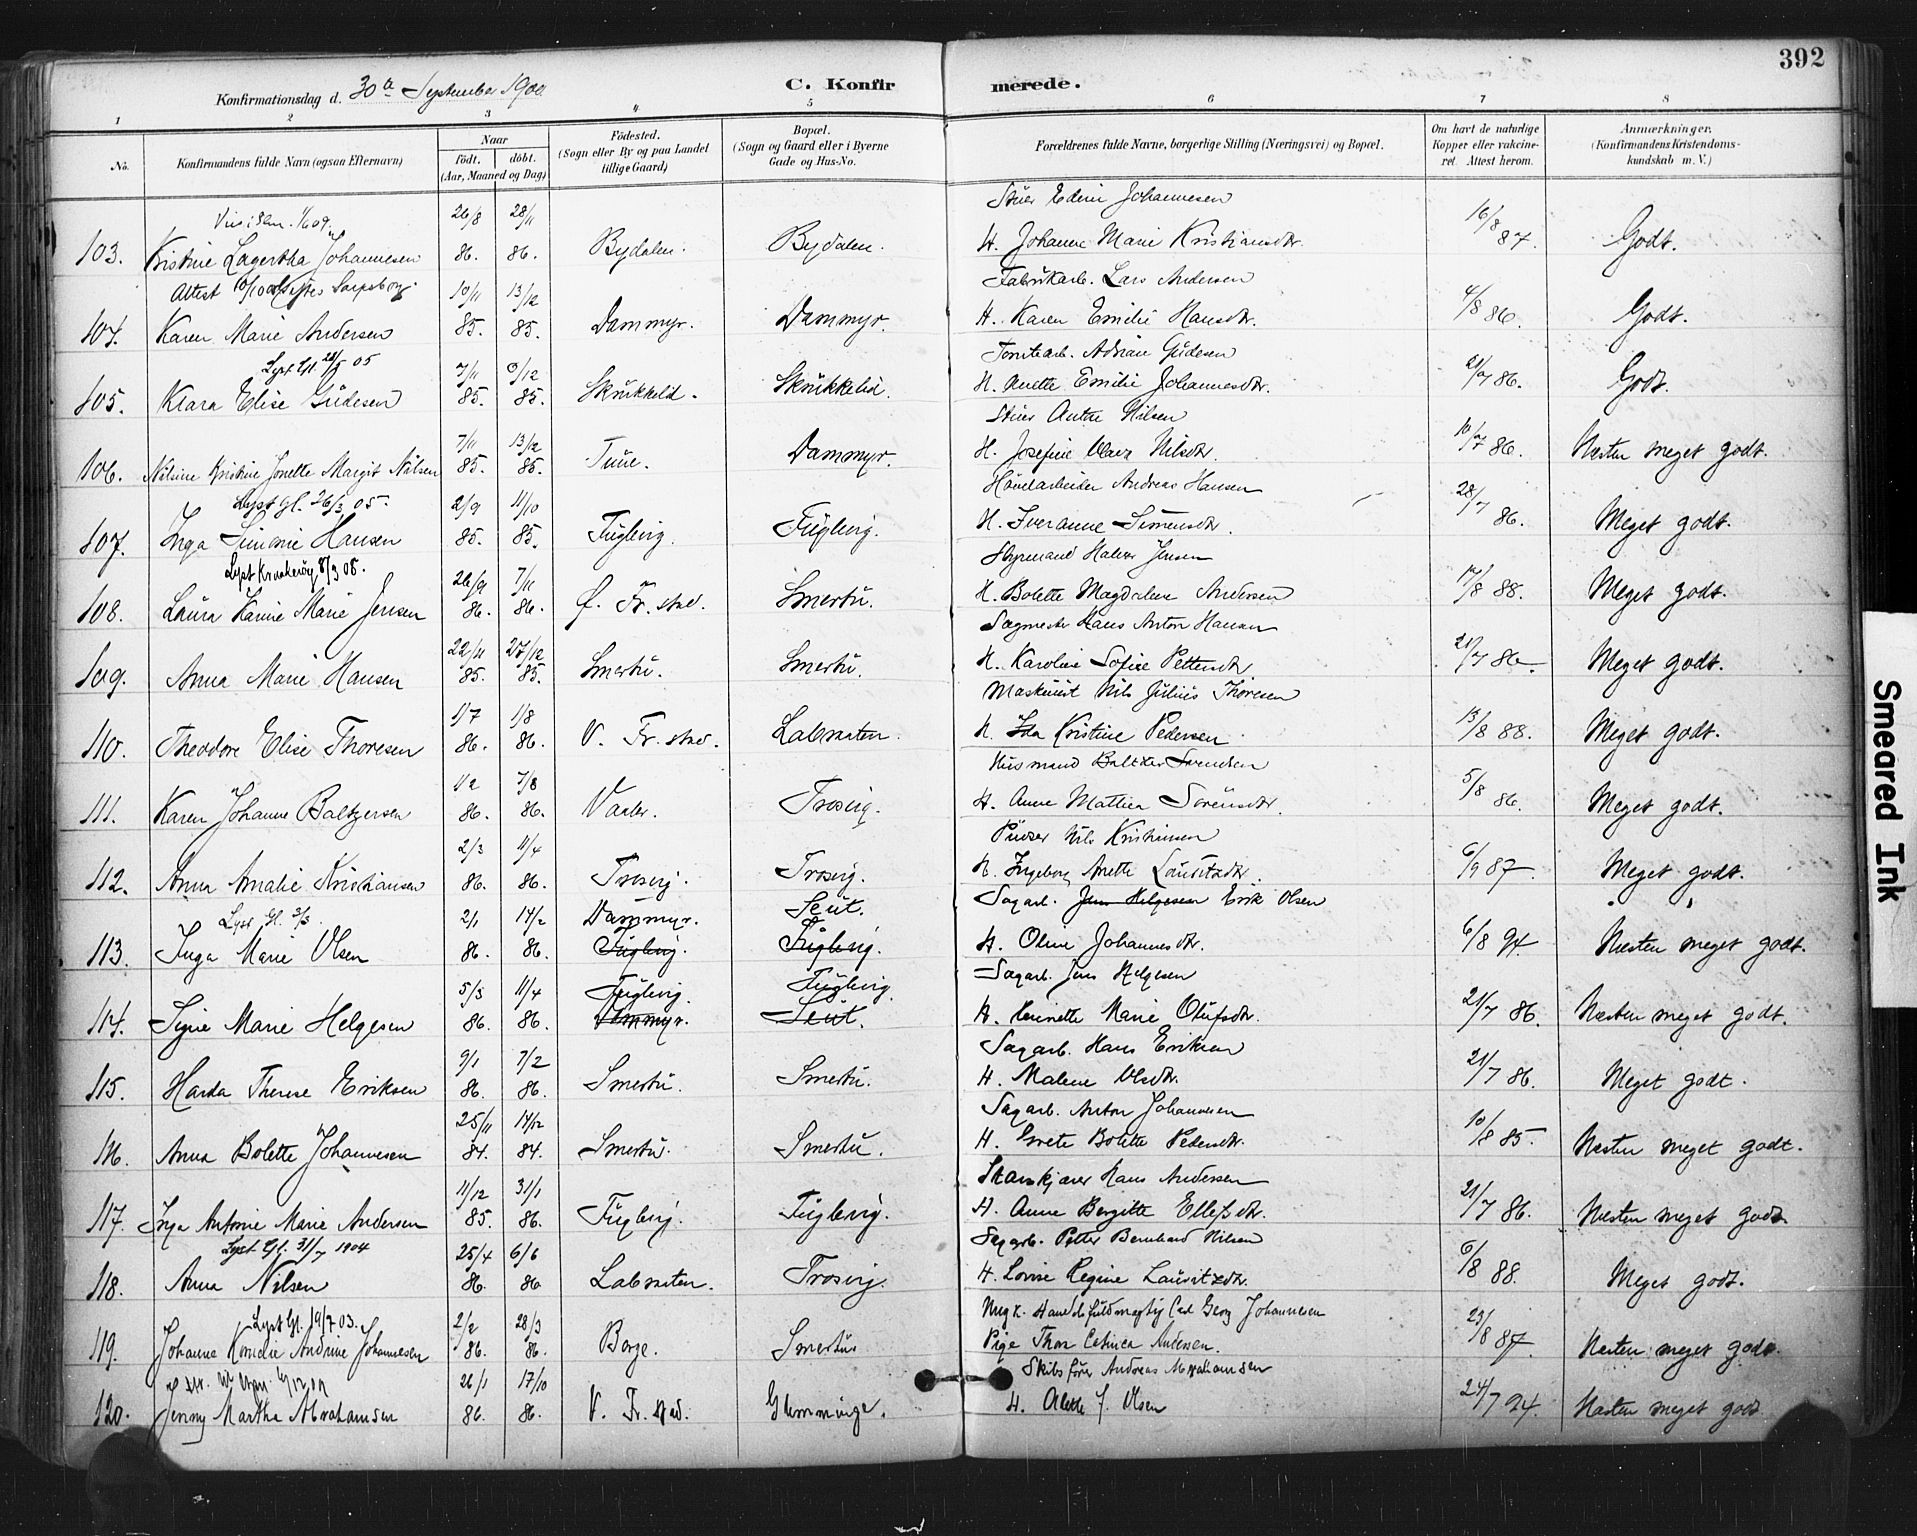 392
Konfirmationsdag d. 30te September 1900.
C. Konfirmerede.
1 2 3 4 5 6 7 8
No.
Konfirmandens fulde Navn (ogsaa Efternavn)
Naar
födt. döbt.
(Aar, Maaned og Dag)
Födested.
(Sogn eller By og paa Landet
tillige Gaard)
Bopæl.
(Sogn og Gaard eller i Byerne
Gade og Hus-No.
Forældrenes fulde Navne, borgerlige Stilling (Næringsvei) og Bopæl.
Om havt de naturlige
Kopper eller vakcine-
ret. Attest herom.
Anmærkninger.
(Konfirmandens Kristendoms-
kundskab m. V.)
26/8 28/11 Stuer Edvin Johannesen
103. Kristine Lagertha Johannesen 86. 86. Bydalen. Bydalen. H. Johanne Marie Kristiansdtr. 16/8 87. Godt.
Attest Sarpsborg. 10/11 13/12 Fabrikarb. Lars Andersen
104. Karen Marie Andersen 85. 85. Dammyr. Dammyr. H. Karen Emilie Hansdtr. 4/8 86. Godt.
Lyst Gl. 28/5 05 7/11 /12 Tomtearb. Adrian Gudesen
105. Klara Elise Gudesen 85. 85. Skrukkelid. Skrukkelid. H. Anette Emilie Johannesdtr. 21/7 86. Godt.
7/11 13/12 Stuer Anthe Nilsen
106. Nilsine Kristine Jonette Margit Nilsen 85. 85. Tune. Dammyr. H. Josefine Nilsdtr. 10/7 86. Næsten meget godt.
Lyst Gl. 26/3 05. 2/9 11/10 Høvelarbeider Andreas Hansen
107. Inga Simonie Hansen 85. 85. Fuglevig. Fuglevig. H. Iveranne Simensdtr. 28/7 86. Meget godt.
Lyst Kraakerøy 8/3 08. 26/9 7/11 Styrmand Halvor Jensen
108. Laura Karine Marie Jensen 86. 86. Ø. Fr.stad. Smertu. H. Bolette Magdalene Andersen 17/8 88. Meget godt.
22/11 27/12 Sagmester Hans Anton Hansen
109. Anna Marie Hansen 85. 85. Smertu. Smertu. H. Karoline Sofie Pettersdtr. 21/7 86 Meget godt.
1/7 1/8 Maskinist Nils Julius Thoresen
110. Theodore Elise Thoresen 86. 86. V. Fr.stad. Labraaten. H. Ida Kristine Pedersen 13/8 88. Meget godt.
1/2 7/3 Husmand Baltzer Svendsen
111. Karen Johanne Baltzersen 86. 86. Vaaler. Trosvig. H. Anne Mathea Sørensdtr. 5/8 86. Meget godt.
2/3 11/4 Pudser Nils Kristiansen
112. Anna Amalie Kristiansen 86. 86. Trosvig. Trosvig. H. Ingeborg Anette Lauritzdtr. 6/9 87. Meget godt.
Lyst Gl. 3/3. 2/1 14/2 Dammyr. Seut. Sagarb. Jens Helgesen Erik Olsen
113. Inga Marie Olsen 86. 86. Fuglevig. Fuglevig. H. Oline Johannesdtr. 6/8 94. Næsten meget godt.
5/3 11/4 Fuglevig. Fuglevig. Sagarb. Jens Helgesen
114. Signe Marie Helgesen 86. 86. Dammyr. Seut. H. Henriette Marie Olufsdtr. 21/7 86. Næsten meget godt.
9/1 7/2 Sagarb. Hans Eriksen
115. Harda Therese Eriksen 86. 86. Smertu. Smertu. H. Malene Olsdtr. 21/7 86. Meget godt.
25/11 14/12 Sagarb. Anton Johannesen
116. Anna Bolette Johannesen 84. 84. Smertu. Smertu. H. Grete Bolette Pedersdtr. 10/8 85. Næsten meget godt.
11/12 31/1 Stankjører Hans Andersen
117. Inga Antonie Marie Andersen 85. 86. Fuglevig. Fuglevig. H. Anne Bergitte Ellefsdtr. 21/7 86. Næsten meget godt
Lyst Gl. 31/7 1904 25/4 6/6 Sagarb. Petter Bernhard Nilsen
118. Anna Nilsen 86. 86 Labraaten. Trosvig. H. Lovise Regine Lauritzdtr. 6/8 88. Meget godt.
Lyst Gl. 19/7 03. 2/2 28/3 Ungk. Handelsfuldmægtig Carl Georg Johannesen
119. Johanne Kornelie Andrine Johannesen 86. 86. Borge. Smertu Pige Thora Andersen. 23/8 87. Næsten meget godt.
26/1 17/10 Skibsfører Andreas Abrahamsen
120. Jenny Martha Abrahamsen 86. 86. V. Fr.stad. Glemminge. H. Alette J. Olsen 24/7 94. Næsten meget godt
Smeared Ink